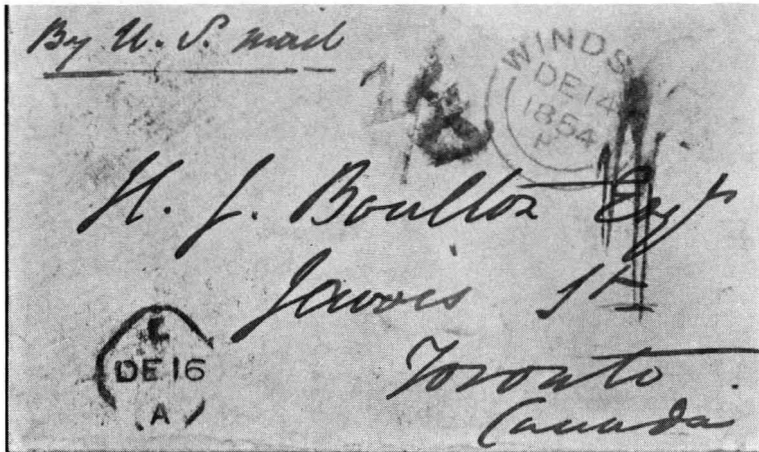 By U. S. mail
WINDS
DE 14
1854
H. J. Boulton Esqr
Jarvis St
Toronto
Canada
DE 16
A